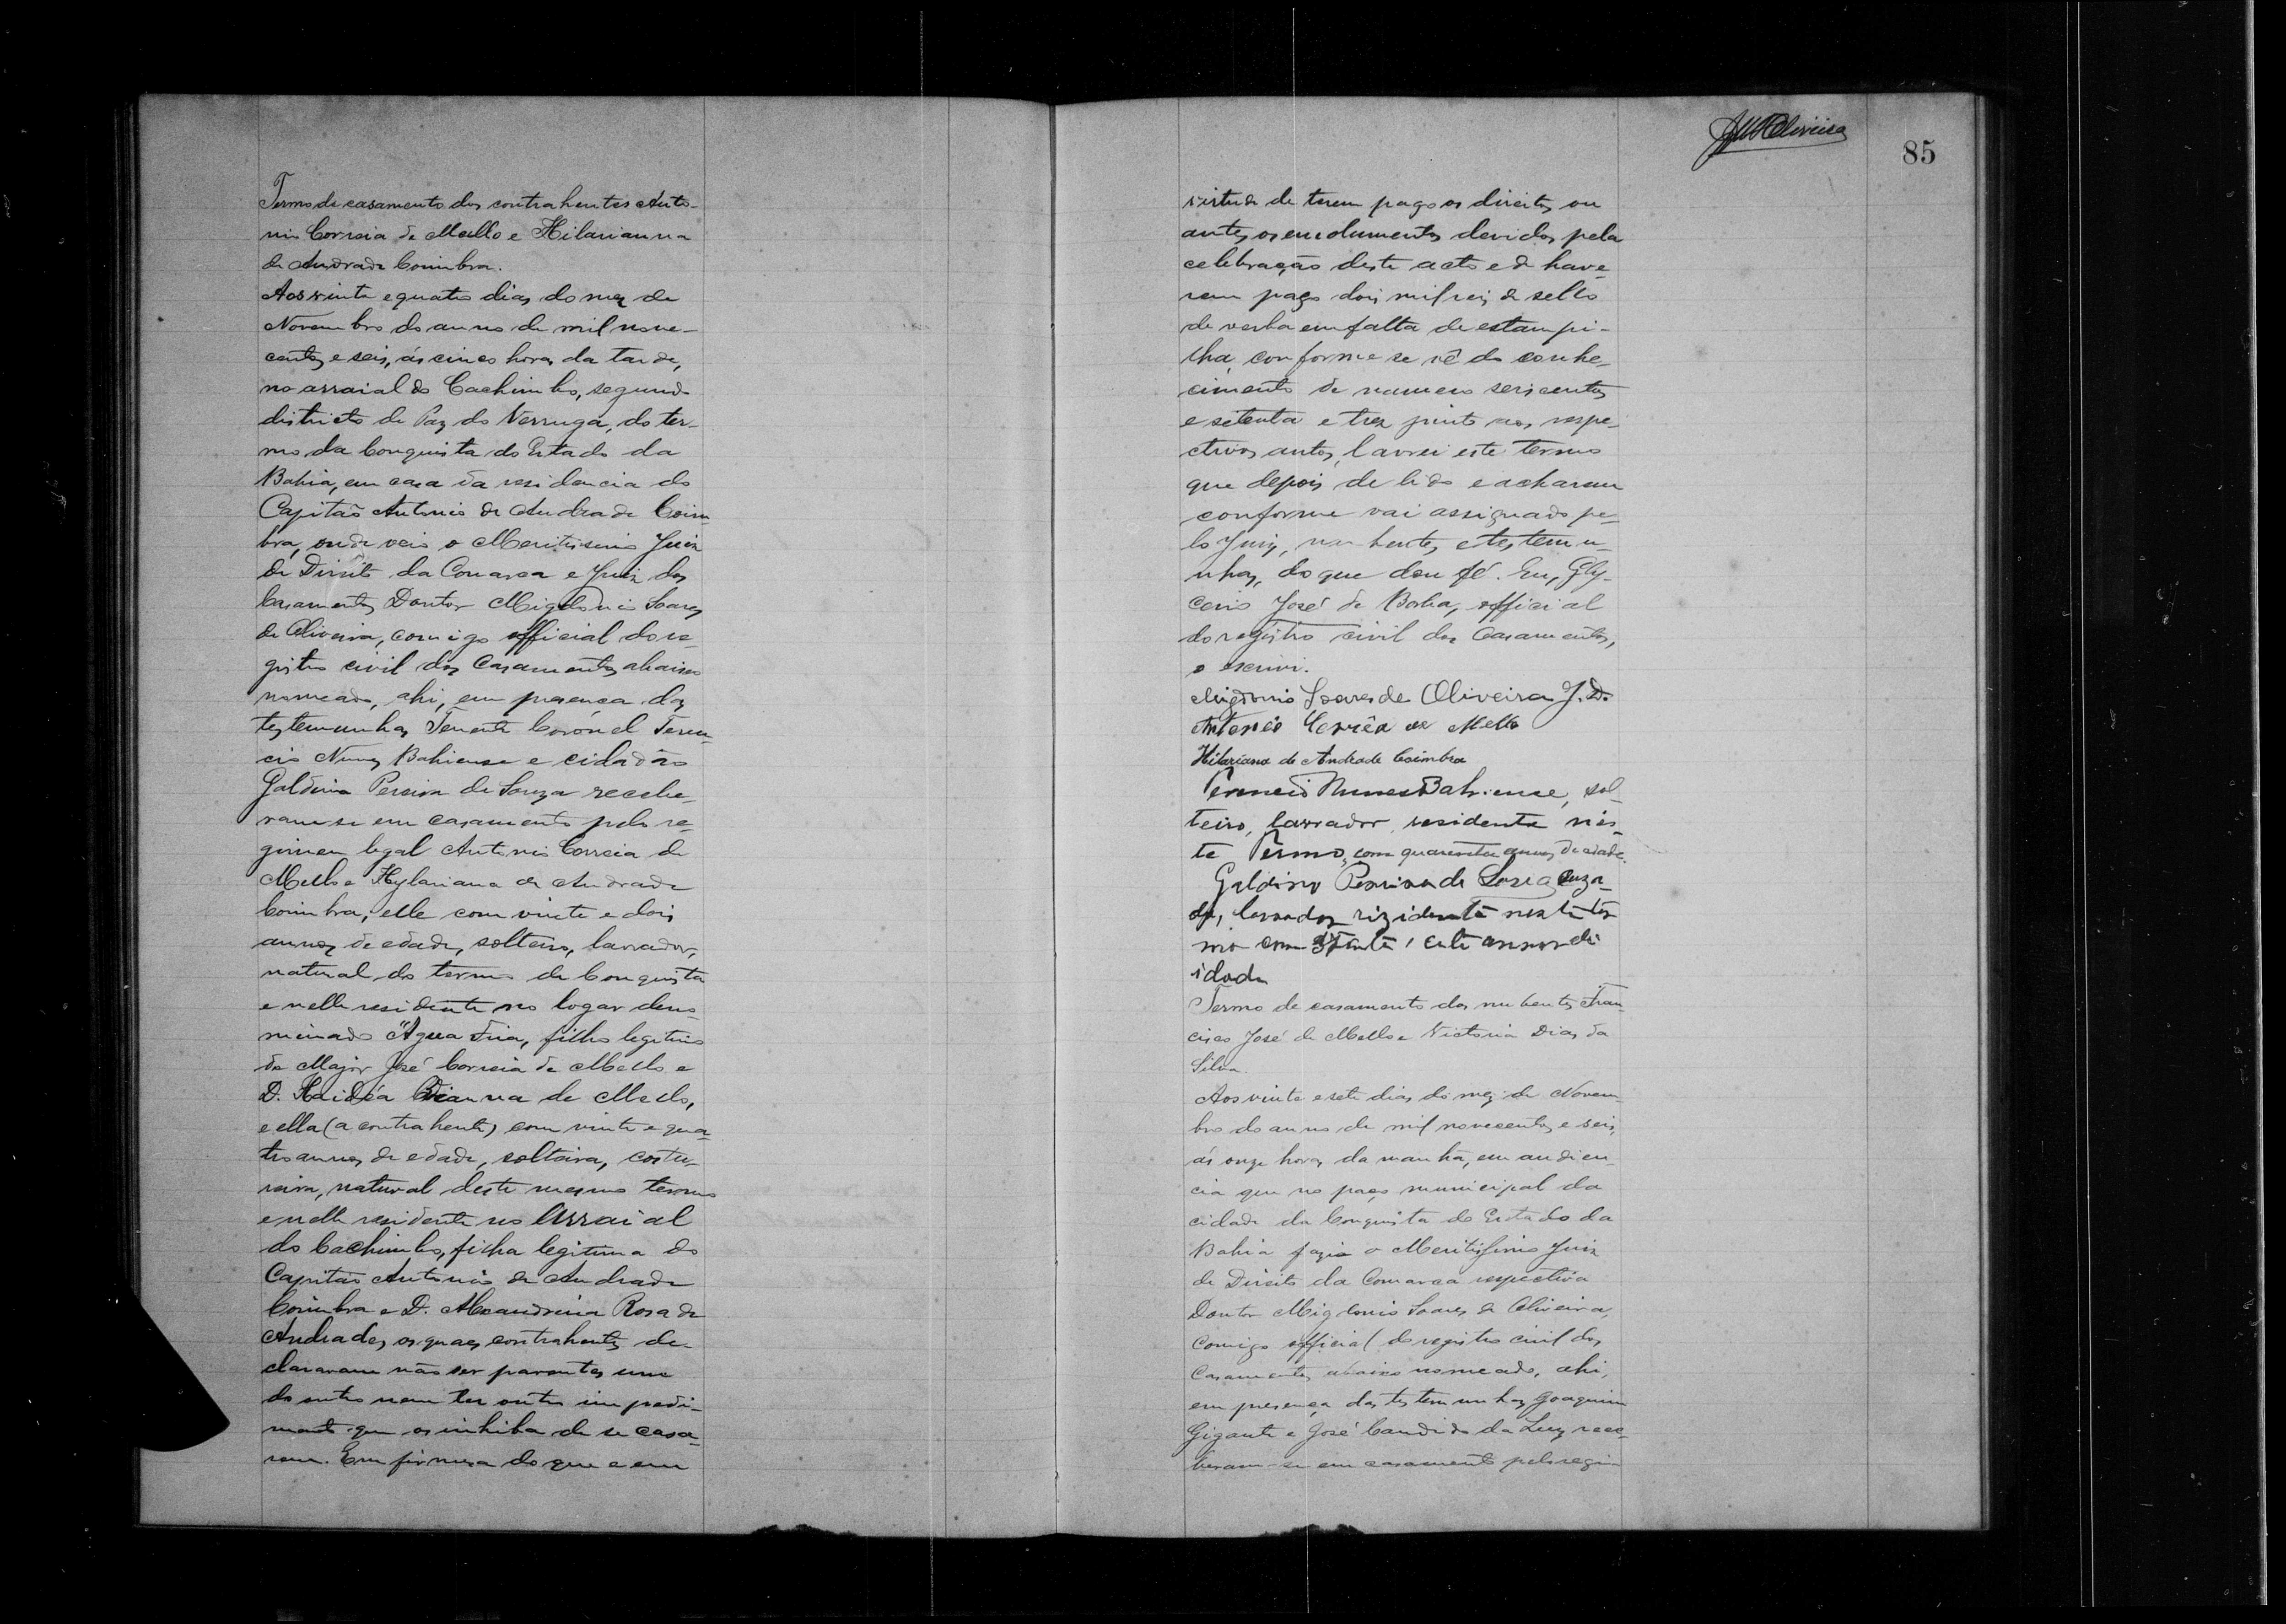 Termo de casamento dos contrahentes Anto-
nio Correia de Mello e Hilarianna
de Andrade Coimbra.
Aos vinte e quatro dias do mez de
Novembro do anno de mil nove-
centos e seis, ás cinco horas da tarde,
no arraial do Cachimbo, segundo
districto de Paz do Verruga, do ter-
mo da Conquista do Estado da
Bahia, em casa da residencia do
Capitão Antonio de Andrade Coim
bra, onde veio o Meritissimo Juiz
de Direito da Comarca e Juiz dos
Casamentos Doutor Migdonio Soares
de Oliveira, comigo official do re-
gistro civil dos Casamentos abaixo
nomeado, ahi, em presença das
testemunhas Tenente Coronel Teren-
cio Nunes Bahiense e cidadão
Galdino Pereira de Souza recebe-
ram-se em casamento pelo re-
gimen legal Antonio Correia de
Mello e Hylariana de Andrade
Coimbra, elle com vinte e dois
annos de edade, solteiro, lavrador,
natural do termo de Conquista
e nelle residente no logar deno-
minado Agua Fria, filho legitimo
do Major José Correia de Mello e
D. Haidéa Vianna de Mello,
e ella (a contrahente) com vinte e qua-
tro annos de edade, solteira, costu-
reira, natural deste mesmo termo
e nelle residente no Arraial
do Cachimbo, filha legitima do
Capitão Antonio de Andrade
Coimbra e D. Alexandrina Rosa de
Andrade, os quaes contrahentes de-
clararam não ser parentes um
do outro nem ter outro impedi-
mento que os inhiba de se casa-
rem. Em firmeza do que e em
JMOliveira
85
virtude de terem pago os direitos, ou
antes, os emolumentos devidos pela
celebração deste acto e de have-
rem pago dois mil reis de sello
de verba em falta de estampi-
lha, conforme se vê do conhe-
cimento de numero seiscentos
e setenta e trez junto aos respe-
ctivos autos, lavrei este termo
que depois de lido e acharem
conforme vai assignado pe-
lo Juiz, nubentes, e testemu-
nhas, do que dou fé. Eu, Gly-
cerio José de Borba, official
do registro civil dos Casamentos,
o escrivi.
Migdonio Soares de Oliveira J. D.
Antonio Corrêa de Mello
Hilariana de Andrade Coimbra
Terencio Nunes Bahiense, sol-
teiro, lavrador, residente nés-
te Termo, com quarenta annos de edade.
Galdino Pereira de Souza Cuza-
do, lavrador rizidente neste ter
mo com annos de
idade
Termo de casamento dos nubentes Fran-
cisco José de Mello e Victoria Dias da
Silva.
Aos vinte e sete dias do mez de Novem-
bro do anno de mil novecentos e seis,
ás onze horas da manhã, em audien-
cia que no paço municipal da
cidade da Conquista do Estado da
Bahia fazia o Meritissimo Juiz
de Direito da Comarca respectiva
Doutor Migdonio Soares de Oliveira,
Comigo official do registro civil dos
Casamentos abaixo nomeado, ahi,
em presença das testemunhas Joaquim
Gigante e José Candido da Luz rece-
beram-se em casamento pelo regi-